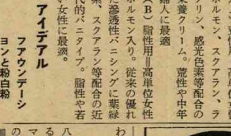 ルモン、スクアラン、ラ
リン、感光色素等配合の
養クリーム。荒性や中年
に最適。
脂性用＝高単位女性
ルモン入り。従来の優れ
滲透性バニシングに葉緑
、スクアラン等配合の近
代的バニタイプ。脂性や若
い女性に最適。
アイデアル
ファウンデーシ
ョンと粉白粉